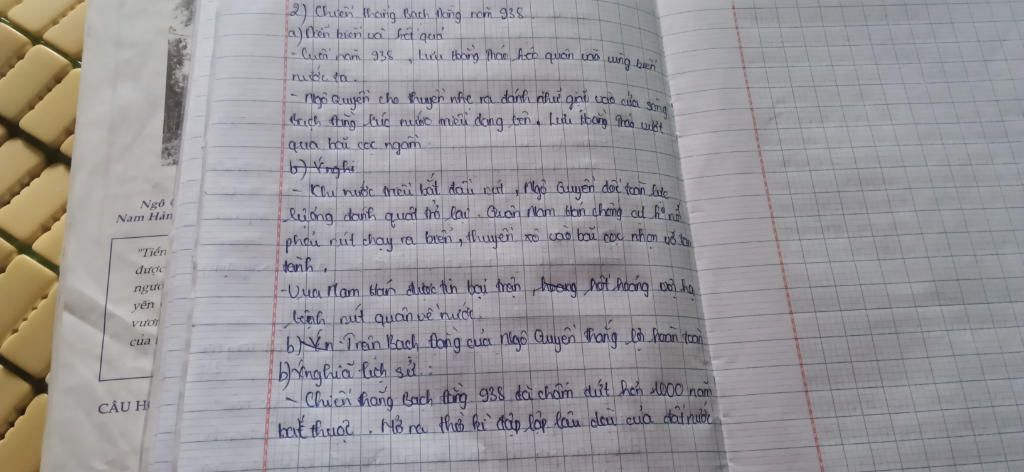 2) Chiến thắng Bạch Đằng năm 938
a) Diễn biến và kết quả
- Cuối năm 938, Lưu Hoằng Tháo kéo quân vào vùng biển
nước ta.
- Ngô Quyền cho thuyền nhẹ ra đánh nhử giặc vào cửa sông
Bạch Đằng lúc nước triều dâng lên. Lưu Hoằng Tháo vượt
qua bãi cọc ngầm
b) Ý nghi
- Khi nước triều bắt đầu rút, Ngô Quyền dốc toàn lực
lượng đánh quật trở lại. Quân Nam Hán chống cự không nổi
phải rút chạy ra biển, thuyền xô vào bãi cọc nhọn vỡ tan
tành.
- Vua Nam Hán được tin bại trận, hoảng hốt hoảng vội hạ
lệnh rút quân về nước.
b) Trận Bạch Đằng của Ngô Quyền thắng lợi hoàn toàn
b) Ý nghĩa lịch sử:
- Chiến thắng Bạch Đằng 938 đã chấm dứt hơn 1000 năm
bắt thuộc. Mở ra thời kì độc lập lâu dài của đất nước
Ngô
Nam Hán
"Tiền
được
ngườ
yên
vươn
của
CÂU H